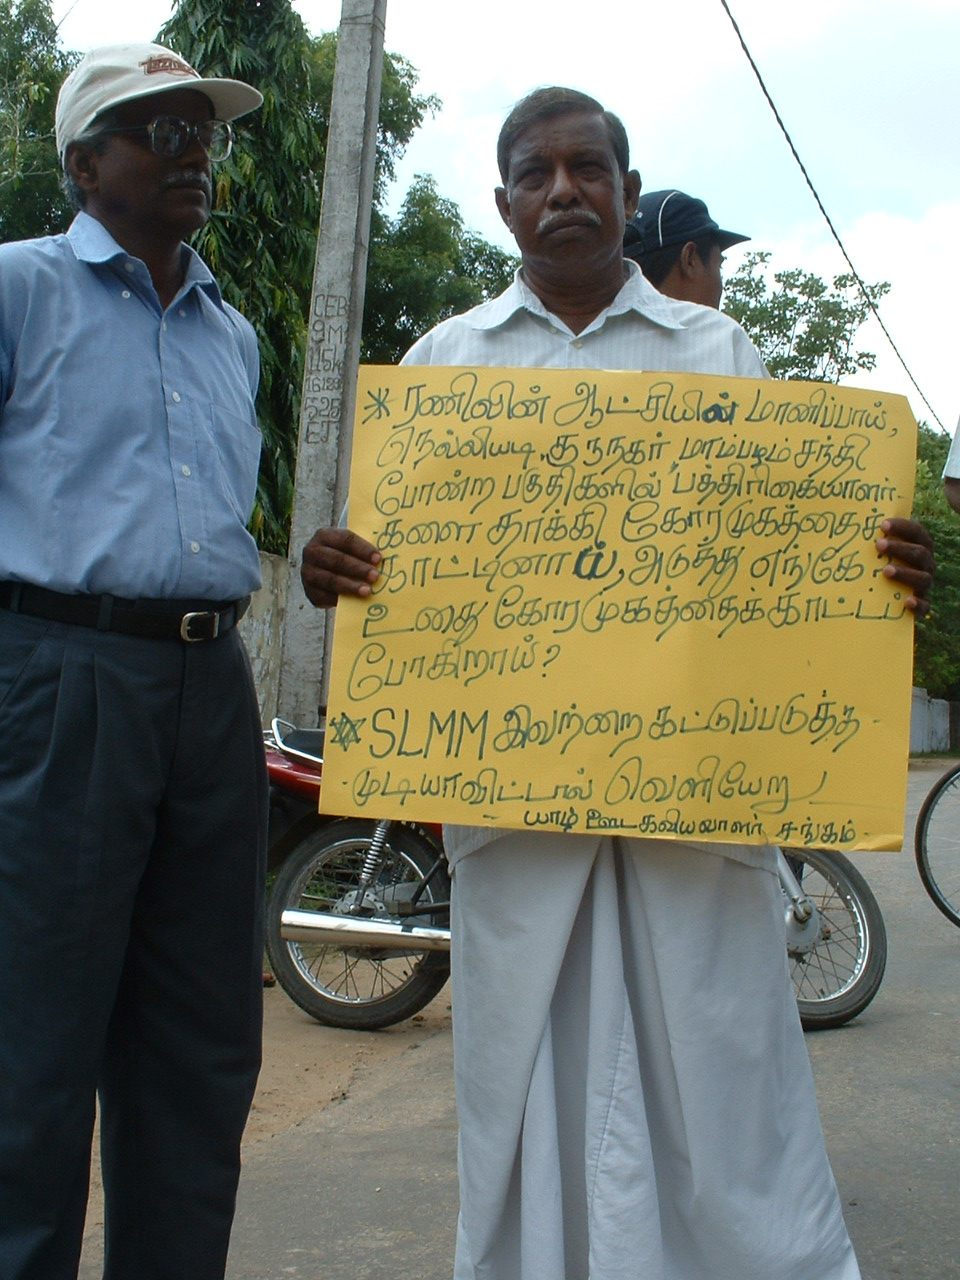 * ரணிலின் ஆட்சியில் மானிப்பாய்,
நெல்லியடி, குருநகர், மாம்பழம் சந்தி
போன்ற பகுதிகளில் பத்திரிகையாளர்-
களை தாக்கி கோரமுகத்தைக்
காட்டினாய், அடுத்து எங்கே?
உனது கோரமுகத்தைக் காட்டப்
போகிறாய்?
* SLMM இவற்றை கட்டுப்படுத்த -
- முடியாவிட்டால் வெளியேறு!
- யாழ் ஊடகவியலாளர் சங்கம் -
CEB
9M